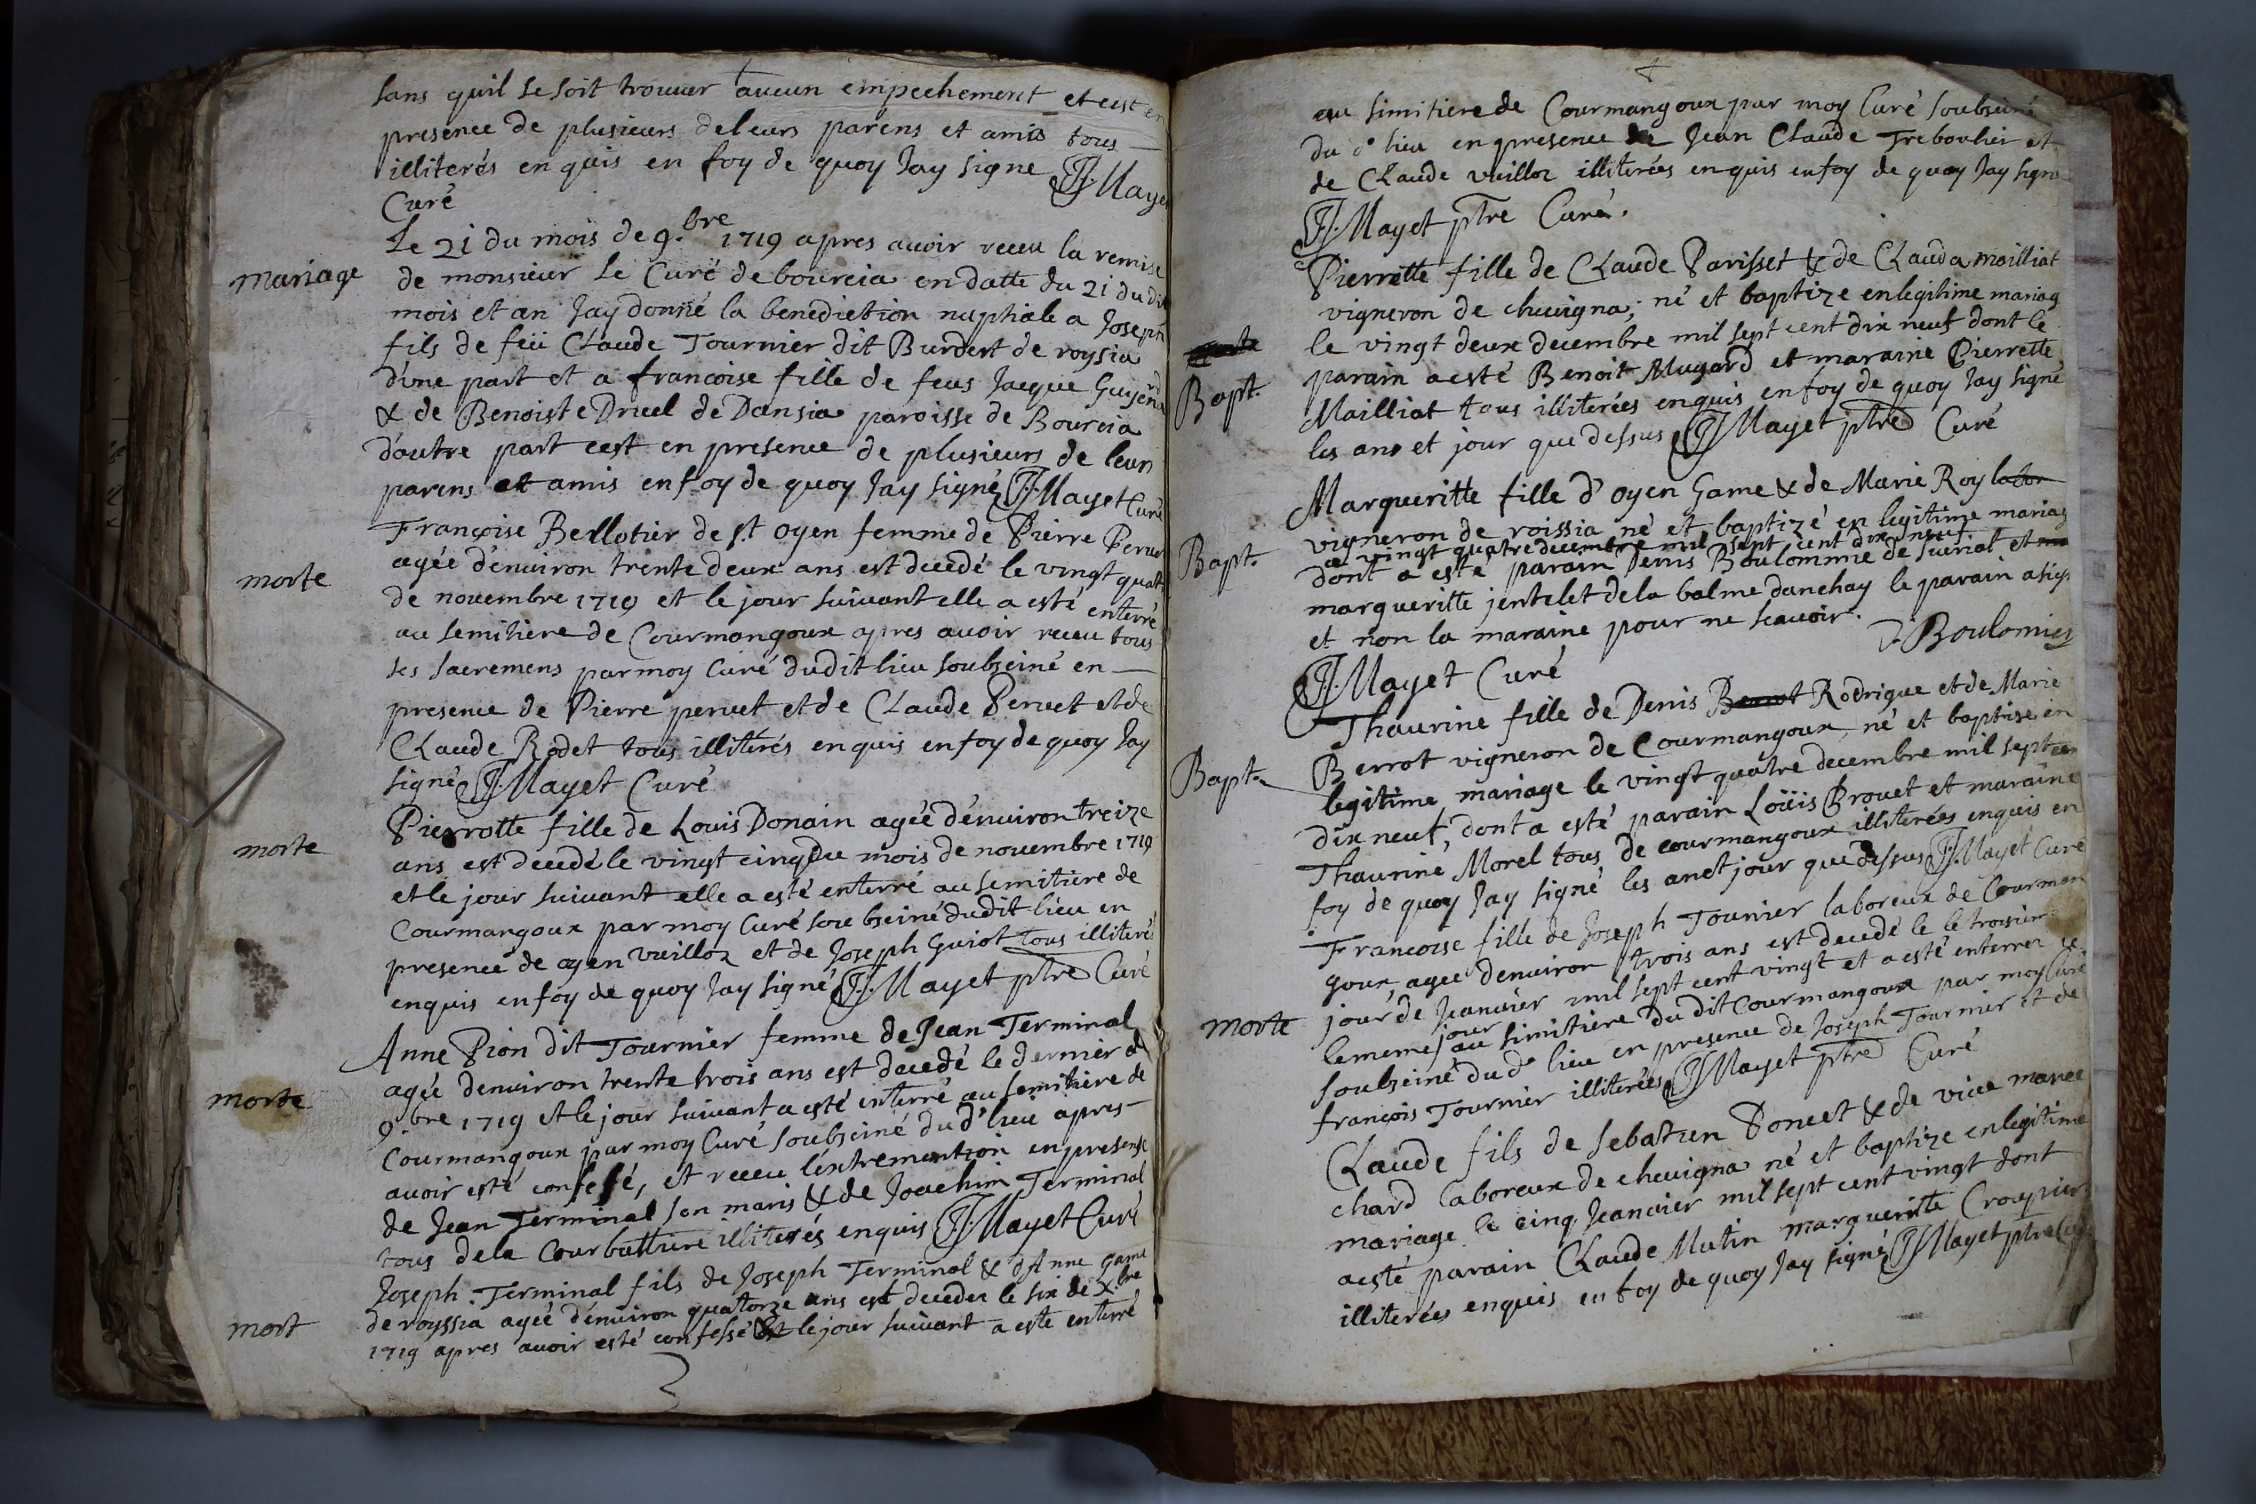 sans quil se soit trouuer aucun empechement et cest en
presence de plusieurs deleurs parens et amis tous
illiterés enquis en foy de quoy Jay signe JJ. Mayet
Curé
Mariage
Le 21 du mois de 9.bre 1719 apres auoir receu la remise
de monsieur le Curé de bourcia en datte du 21 du dit
mois et an Jay donné la benediction nuptiale a Joseph
fils de feü Claude Tournier dit Burdert de roysia
dune part et a francoise fille de feus Jacque Guyenard
& de Benoiste Druel de Dansia paroisse de Bourcia
dautre part cest en presence de plusieurs de leurs
parens et amis en foy de quoy Jay signé JJ. Mayet Curé
morte
Françoise Bellotier de st oyen femme de Pierre Peruet
agée denuiron trente deux ans est decedé le vingt quatr
de nouembre 1719 et le jour suiuant elle a esté enterré
au semitiere de Courmangoux apres auoir receu tous
ses sacremens par moy Curé dudit lieu soubseiné en
presence de Pierre peruet et de Claude Peruet et de
Claude Rodet tous illiterés enquis en foy de quoy Jay
signé JJ. Mayet Curé
morte
Pierrotte fille de Louis Donain agée denuiron treize
ans est decedé le vingt cinq du mois de nouembre 1719
et le jour suiuant elle a esté enterré au semitiere de
Courmangoux par moy Curé soubseiné dudit lieu en
presence de oyen vuilloz et de Joseph Guiot tous illiterés
enquis en foy de quoy Jay signé JJ. Mayet ptre Curé
morte
Anne Pion dit Tournier femme de Jean Terminal
agée denuiron trente trois ans est decedé le dernier de
9.bre 1719 et le jour suiuant a esté enterré au semitiere de
Courmangoux par moy Curé soubseiné du d.t lieu apres
auoir esté confessé, et receu lextremontion en presense
de Jean Terminal son maris & de Joachim Terminal
tous dela Courbatture illiterés enquis JJ. Mayet Curé
mort
Joseph Terminal fils de Joseph Terminal & d'Anne Game
de royssia agée denuiron quatorze ans est deceder le six de X.bre
1719 apres auoir esté confessé et le jour suiuant a este enterré
au simitiere de Courmangoux par moy Curé soubseiné
du d.t lieu en presence de Jean Claude Treboulier et
de Claude vuilloz illiterées enquis en foy de quoy Jay signe
JJ. Mayet ptre Curé.
Bapt.
Pierrette fille de Claude Parisset & de Clauda moilliat
vigneron de cheuigna, né et baptize en legitime mariag
le vingt deux decembre mil sept cent dix neuf dont le
parain a esté Benoit Mugard et maraine Pierrette
Mailliat tous illiterées enquis en foy de quoy Jay signé
les ans et jour que dessus JJ Mayet ptre Curé
Bapt.
Margueritte fille d'oyen Game & de Marie Roy labor
vigneron de roissia né et baptizé en legitime mariag
le vingt quatre decembre mil sept cent dix neuf
dont a esté parain Denis Boulommie de suriat et ma
margueritte jentelet dela balme danchay le parain a sig
et non la maraine pour ne scauoir.
D. Boulomier
JJ. Mayet Curé
Bapt.
Thaurine fille de Denis Berrot Rodrigue et de Marie
Berrot vigneron de Courmangoux, né et baptise en
legitime mariage le vingt quatre decembre mil sept cen
dix neuf, dont a esté parain Loüis Brouet et maraine
Thaurine Morel tous de courmangoux illiterées enquis en
foy de quoy Jay signé les an et jour que dessus JJ. Mayet Curé
morte
Francoise fille de Joseph Tournier laboreux de Courman
goux, agée denuiron trois ans est decedé le le troisiem
jour de Jeanuier mil sept cent vingt et a esté enterrer
lememe jour au simitiere du dit Courmangoux par moy Curé
soubseiné du d.t lieu en presence de Joseph Tournier et de
françois Tournier illiterées JJ Mayet ptre Curé
Claude fils de Sebastien Poncet & de vice maree
chard laboreux de cheuigna né et baptize en legitime
mariage le cinq Jeanuier mil sept cent vingt dont
a esté parain Claude Mutin margueritte Croupier
illiterées enquis en foy de quoy Jay signé JJ Mayet ptre Curé